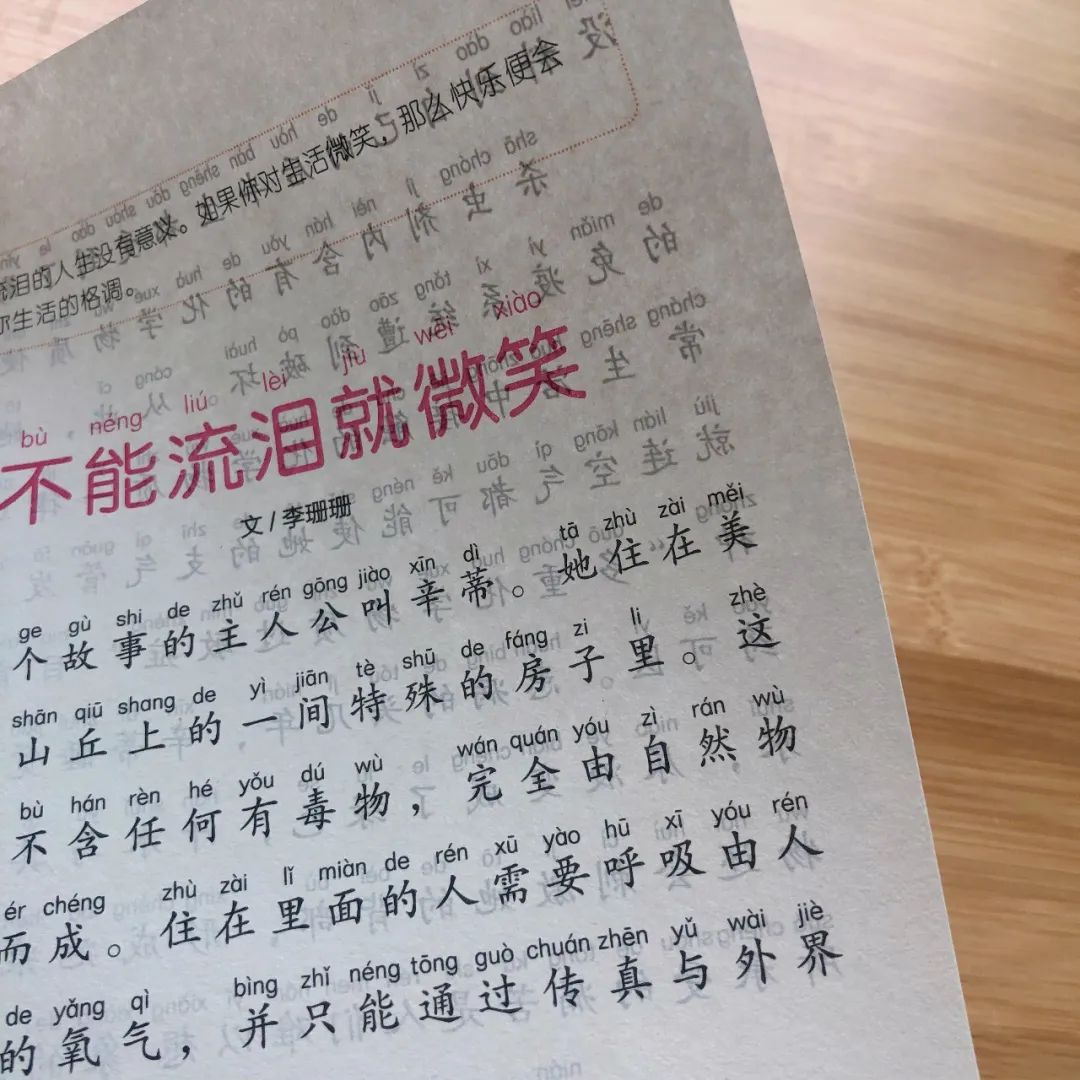 流泪的人生没有意义。如果你对生活微笑，那么快乐便会
你生活的格调。
bù néng liú lèi jiù wēi xiào
不能流泪就微笑
文/李珊珊
ge gù shi de zhǔ rén gōng jiào xīn dì tā zhù zài měi
个故事的主人公叫辛蒂。她住在美
shān qiū shang de yì jiān tè shū de fáng zi li zhè
山丘上的一间特殊的房子里。这
bù hán rèn hé yǒu dú wù wán quán yóu zì rán wù
不含任何有毒物，完全由自然物
ér chéng zhù zài lǐ miàn de rén xū yào hū xī yóu rén
而成。住在里面的人需要呼吸由人
de yǎng qì bìng zhǐ néng tōng guò chuán zhēn yǔ wài jiè
的氧气，并只能通过传真与外界